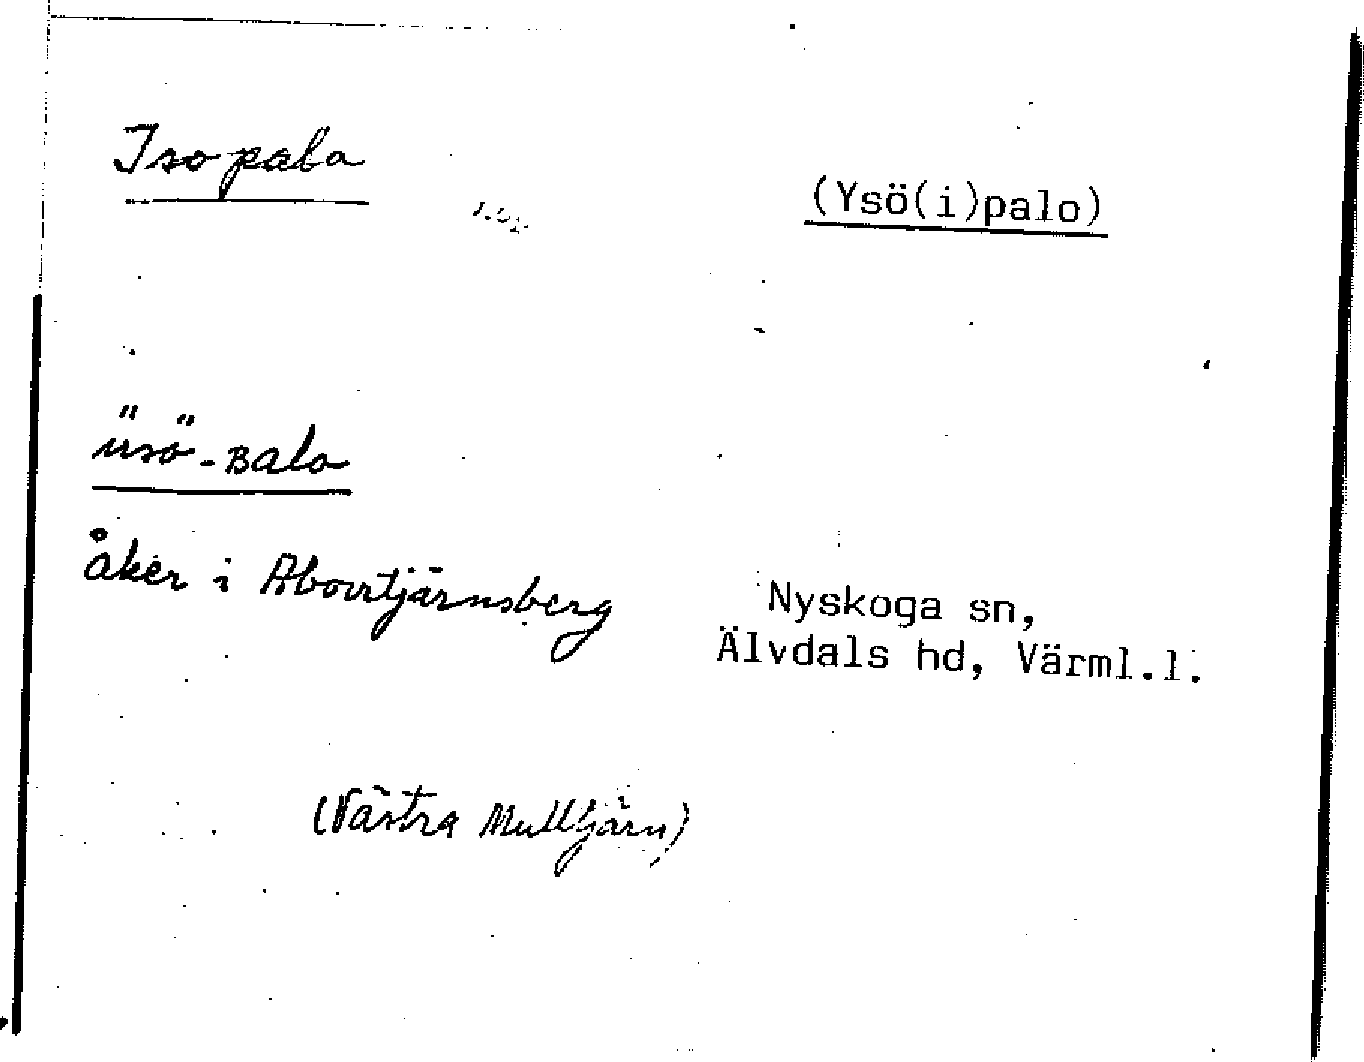 Isopalo
(Ysö(i)palo)
üsö-Balo
åker i Abortjärnsberg
Nyskoga sn,
Älvdals hd, Värml.l.
(Västra Mulltjärn)